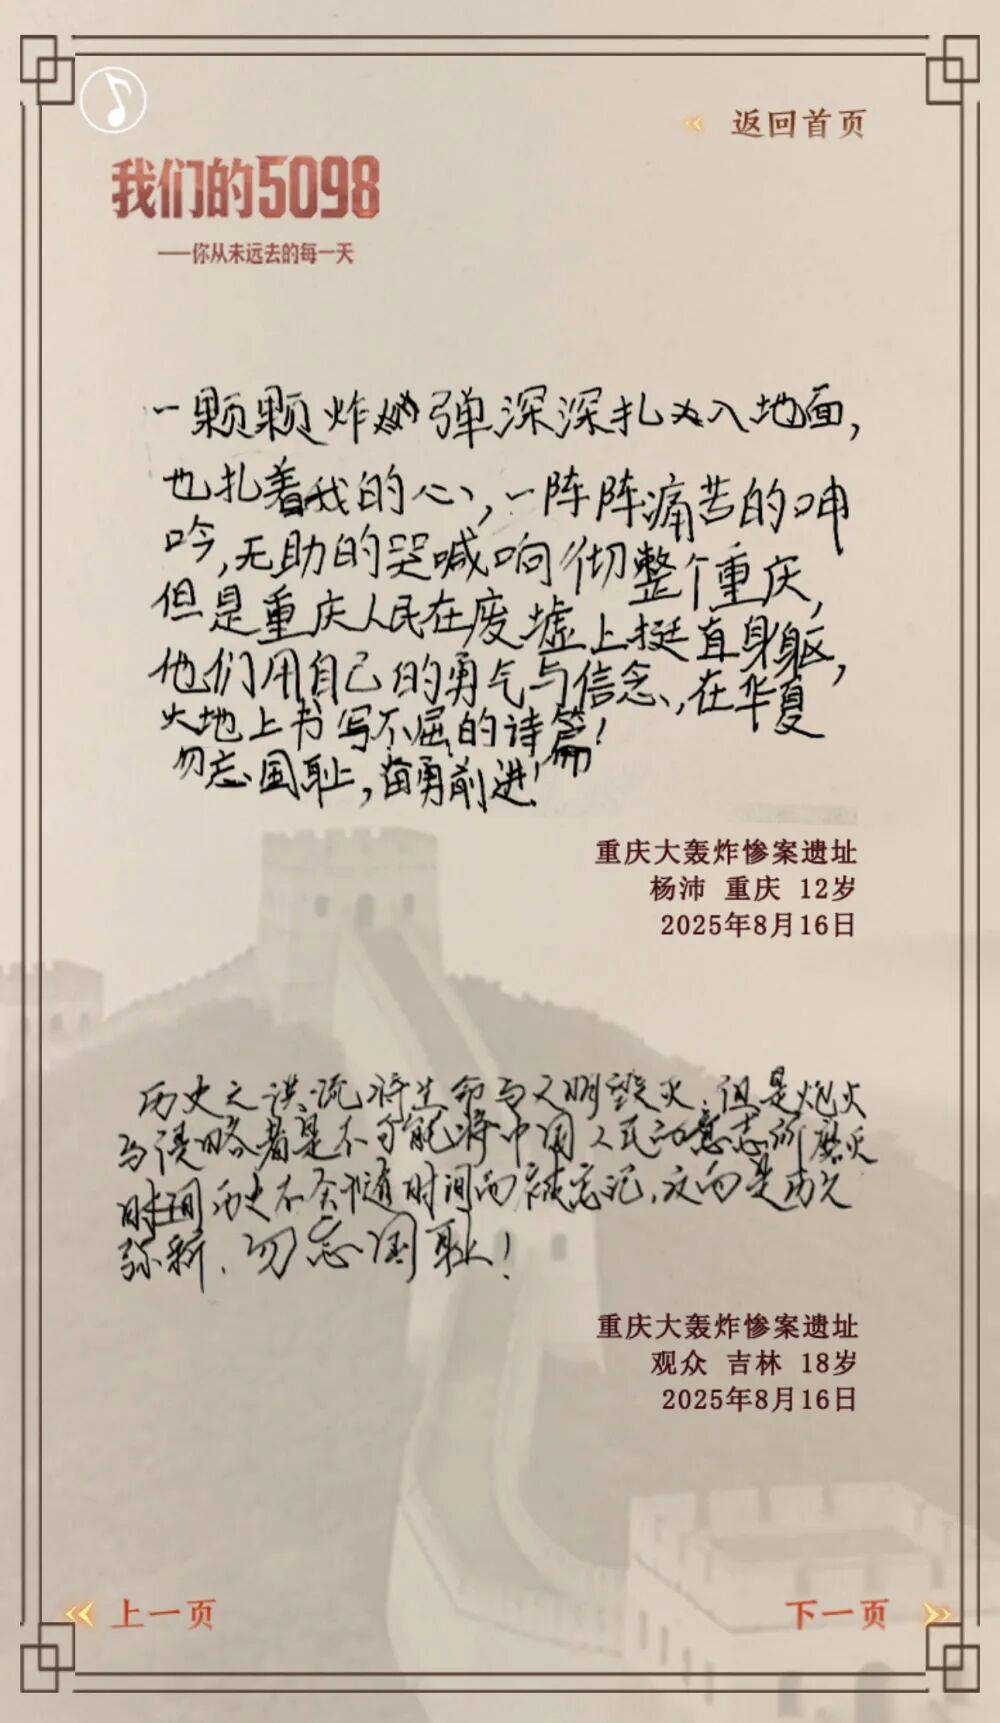 返回首页
我们的5098
——你从未远去的每一天
一颗颗炸弹深深扎入地面，
也扎着我的心，一阵阵痛苦的呻
吟，无助的哭喊响彻整个重庆，
但是重庆人民在废墟上挺直身躯，
他们用自己的勇气与信念，在华夏
大地上书写不屈的诗篇！
勿忘国耻，奋勇前进！
重庆大轰炸惨案遗址
杨沛 重庆 12岁
2025年8月16日
历史之洪流将生命与文明毁灭，但是炮火
与侵略者是不可能将中国人民的意志所磨灭
时间历史不会随时间而被忘记，反而是历久
弥新，勿忘国耻！
重庆大轰炸惨案遗址
观众 吉林 18岁
2025年8月16日
上一页
下一页